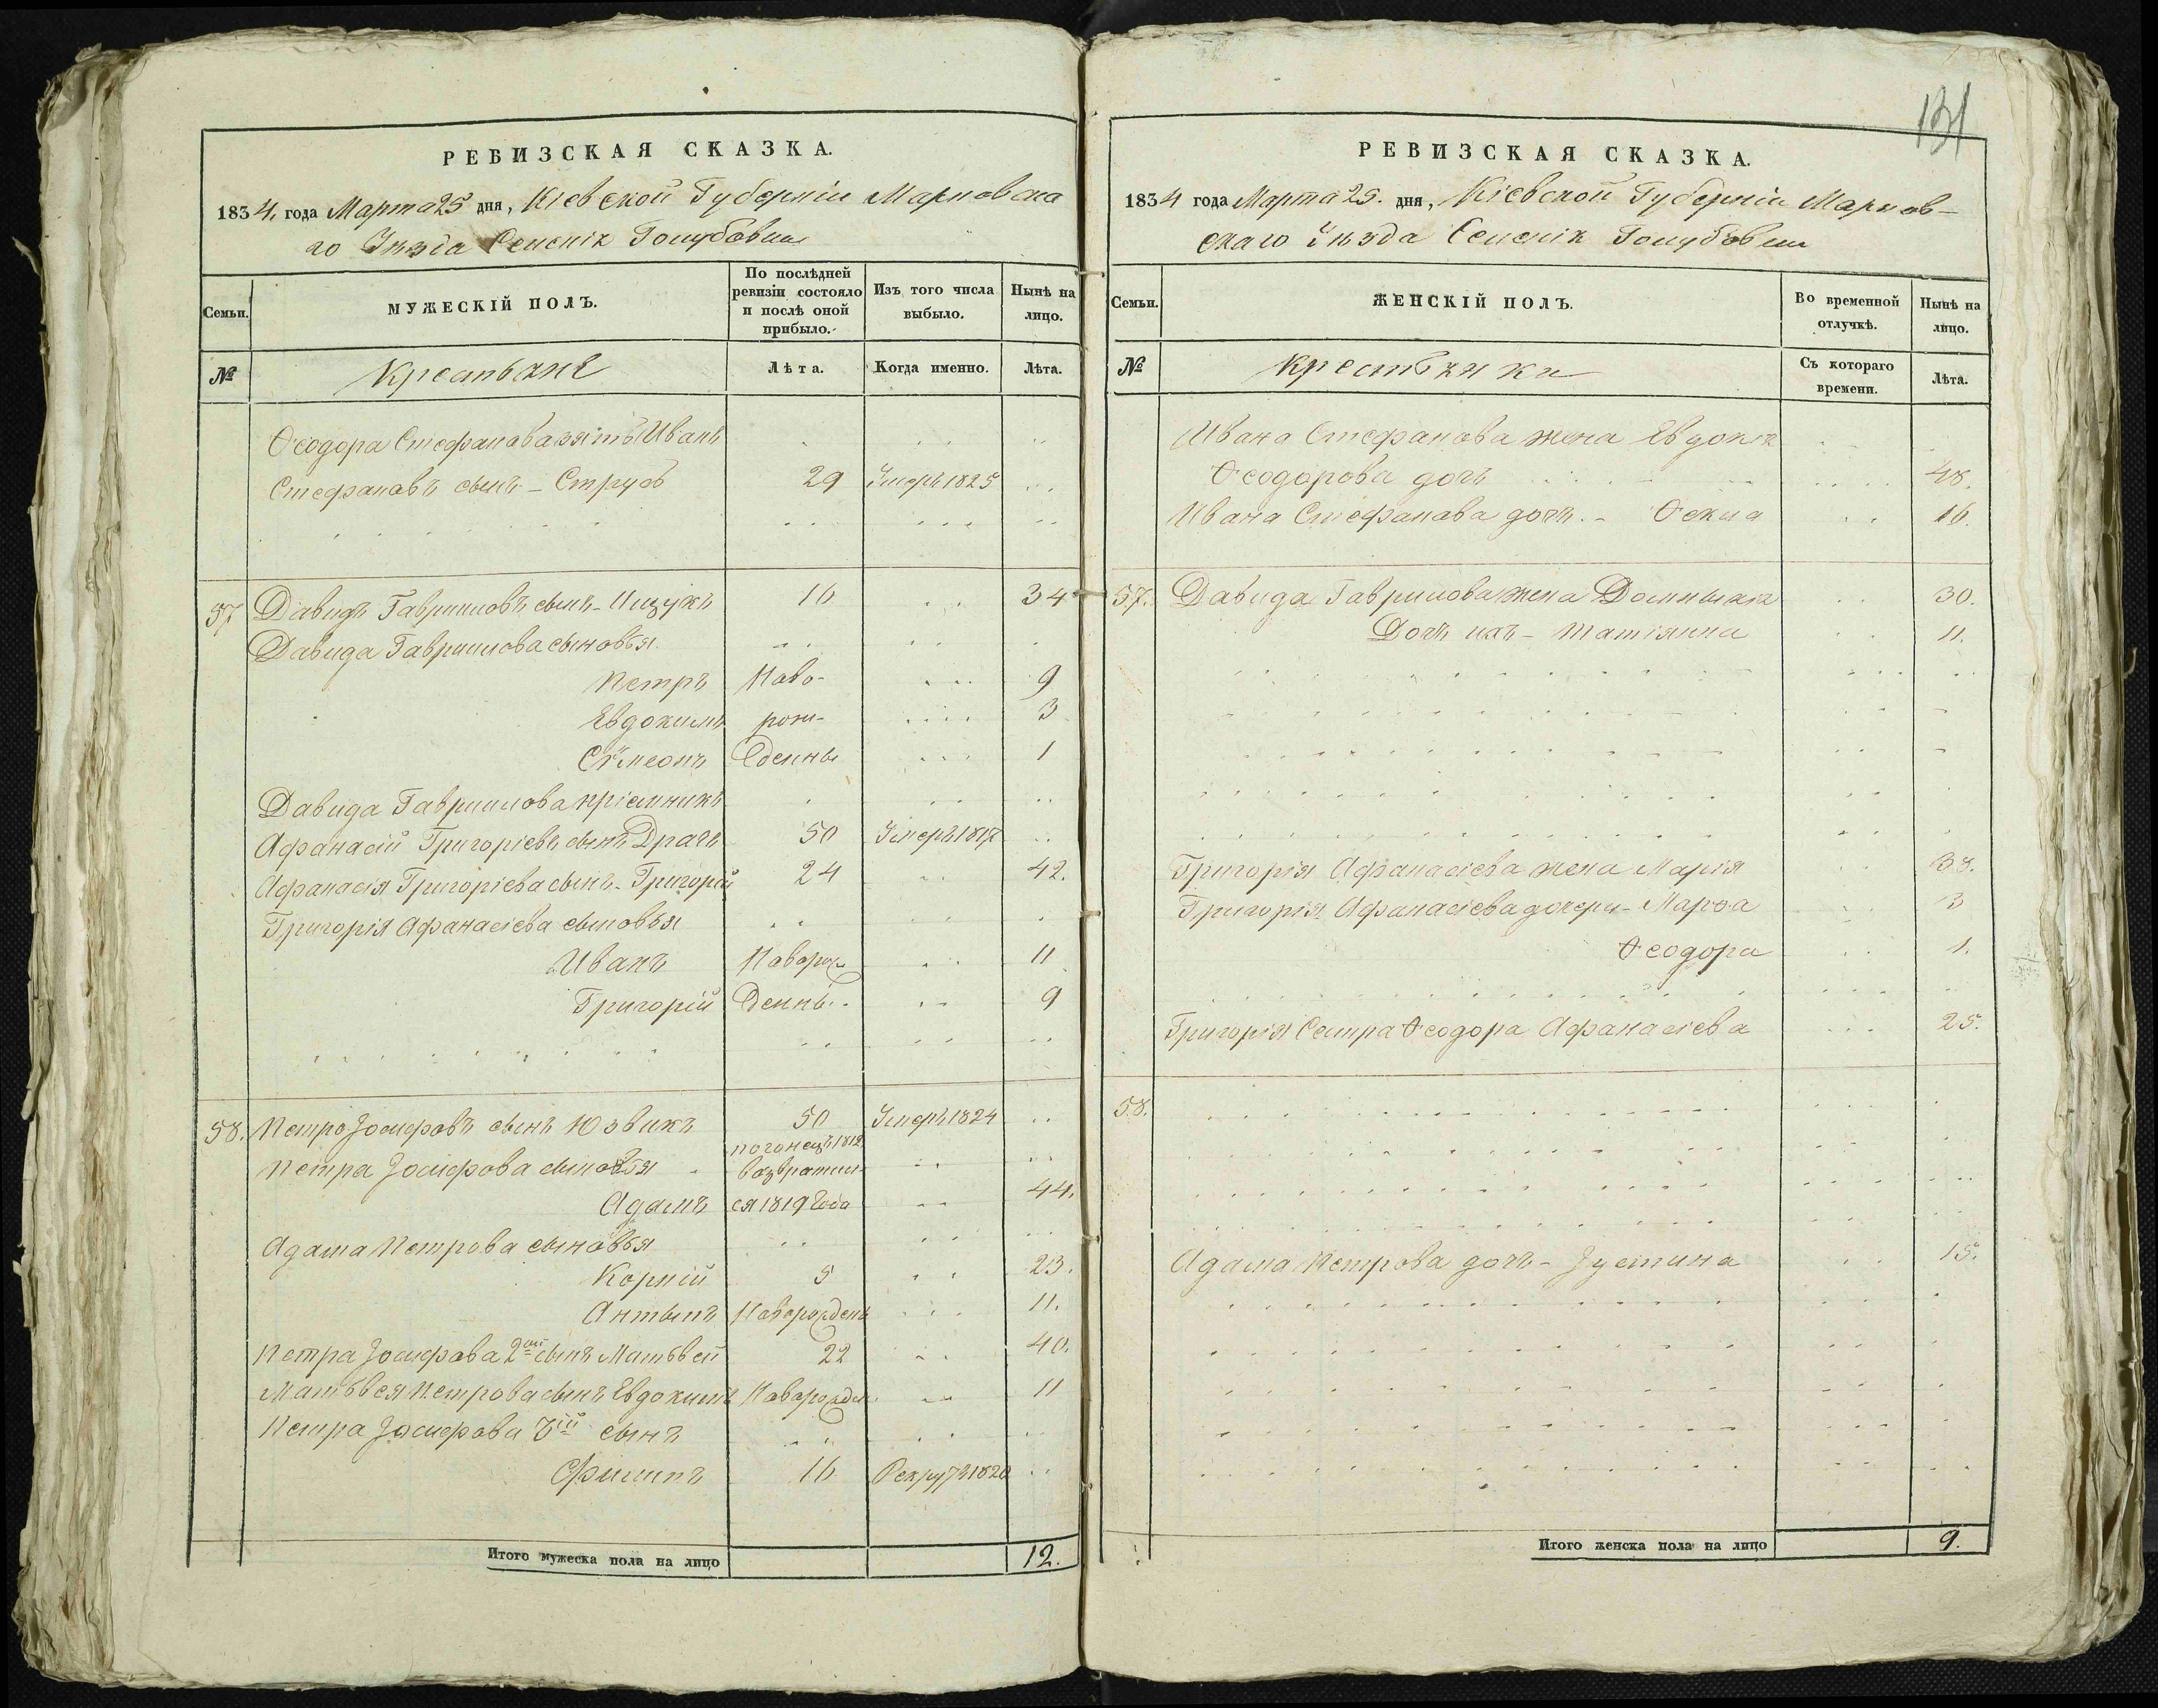 РЕВИЗСКАЯ СКАЗКА.
1834. года Марта 25 дня, Кіевской Губерніи
го Уѣзда
Семьи.
МУЖЕСКІЙ ПОЛЪ.
По послѣдней
ревизіи состояло
и послѣ оной
прибыло.
Изъ того числа
выбыло.
Нынѣ на
лицо.
№
Крестьяне
Лѣта.
Когда именно.
Лѣта.
Ѳеодора Стефанова зять Иванъ
Стефановъ сынъ - 29 Умеръ 1825
57 Давидъ Гавриловъ сынъ - Ищукъ 16 34
Давида Гаврилова сыновья
Петръ Ново- 9
Евдокимъ рож- 3
Сѵмеонъ денны 1
Давида Гаврилова пріемникъ
Афанасій Григоріевъ сынъ Драчъ 50 Умеръ
Афанасія Григоріева сынъ - Григорій 24 42.
Григорія Афанасіева сыновья
Иванъ Новорож 11
Григорій денны 9
58. Петро Іосифовъ сынъ Юзвикъ 50 Умеръ 1824
Петра Іосифова сыновья возвратил-
Адамъ ся 1819 года 44.
Адама Петрова сыновья
Корній 5 23.
Антипъ Новорожденъ 11.
Петра Іосифова 2ой сынъ Матвѣй 22 40.
Матвѣя Петрова сынъ Евдокимъ Новорожден 11
Петра Іосифова 3ій сынъ
Филипъ 16 Рекрут 1820
Итого мужеска пола на лицо 12.
131
РЕВИЗСКАЯ СКАЗКА.
1834 года Марта 25. дня, Кіевской Губерніи
скаго Уѣзда
Семьи.
ЖЕНСКІЙ ПОЛЪ.
Во временной
отлучкѣ.
Нынѣ на
лицо.
№
Крестьянки
Съ котораго
времени.
Лѣта.
Ивана Стефанова жена Евдокія
Ѳеодорова дочь 48.
Ивана Стефанова дочь - Ѳекла 16.
57. Давида Гаврилова жена 30.
Дочь ихъ - Татіянна 11.
Григорія Афанасіева жена Марія 38.
Григорія Афанасіева дочери - Марѳа 3
Ѳеодора 1.
Григорія Сестра Ѳеодора Афанасіева 25.
58.
Адама Петрова дочь - Іустина 15.
Итого женска пола на лицо 9.